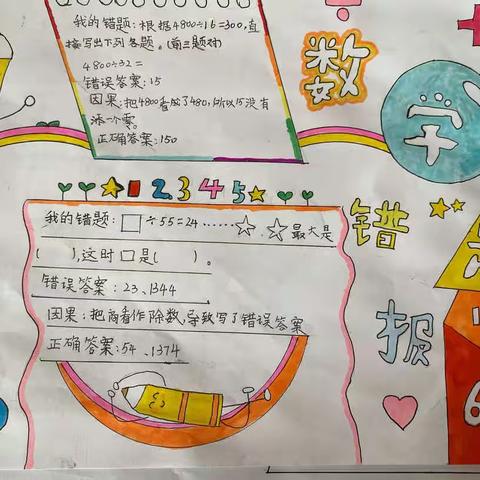 我的错题:根据4800÷16=300,直
接写出下列各题。(前三题对)
4800÷32=
错误答案:15
因果:把4800看成了480,所以15没有
添一个零。
正确答案:150
÷
数
学
1 2 3 4 5
我的错题:□÷55=24……☆,☆最大是
( ),这时□是( )。
错误答案:23、1344
因果:把商看作除数,导致写了错误答案
正确答案:54、1374
错
报